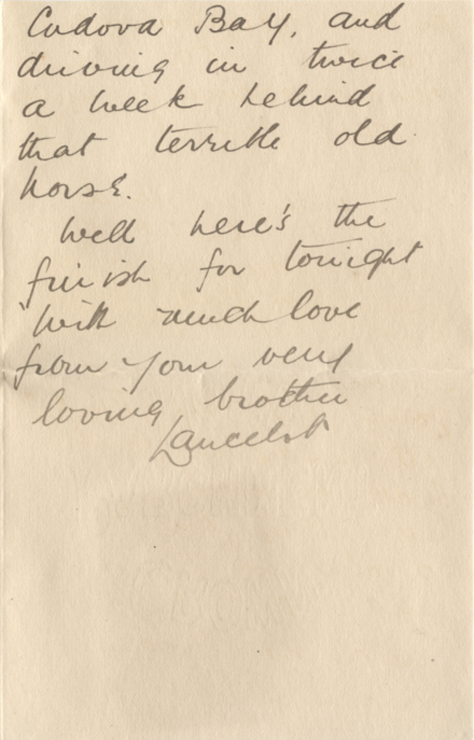 Cadova Bay, and
driving in twice
a week behind
that terrible old
horse.
Well here's the
finish for tonight
With much love
from your very
loving brother
Lancelot